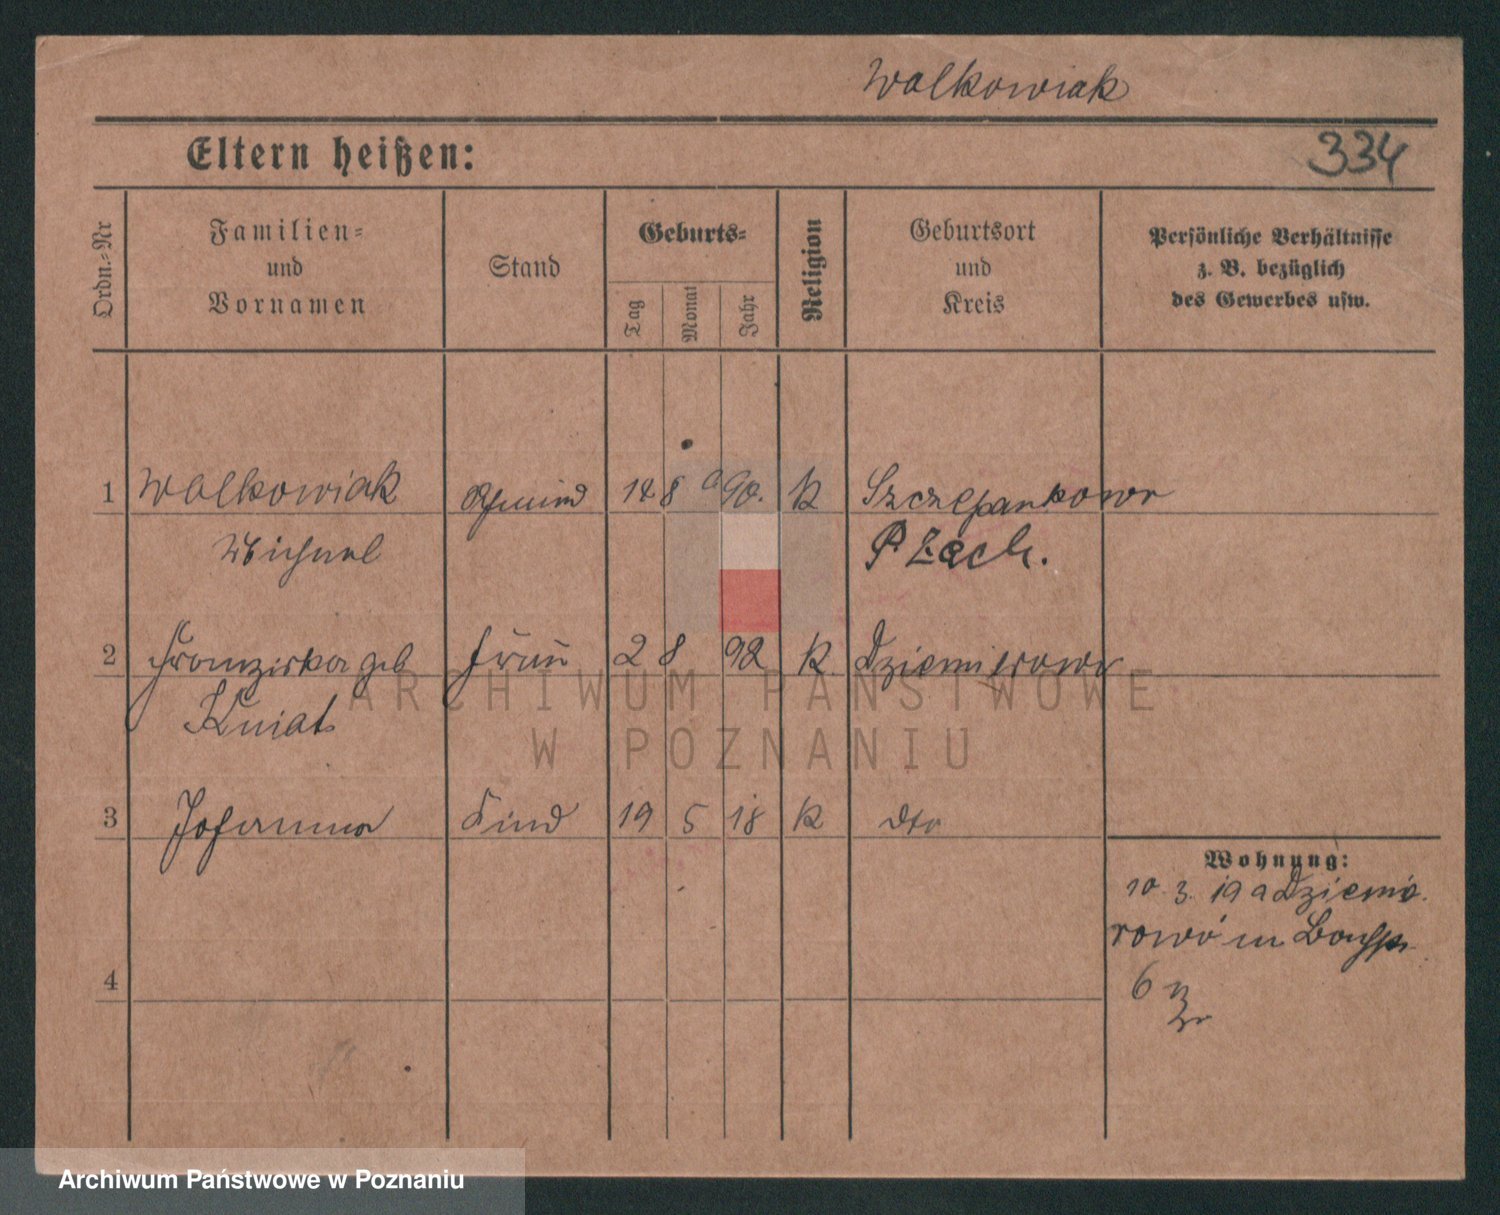 Walkowiak
Eltern heißen:
334
Ordn.-Nr
Familien-
und
Vornamen
Stand
Geburts-
Tag
Monat
Jahr
Religion
Geburtsort
und
Kreis
Persönliche Verhältnisse
z. B. bezüglich
des Gewerbes usw.
1 Walkowiak 14 8 90. K Szczepankowo
Michael
2 Franziska geb Frau 2 8 92 K. Dziemierowo
Kniat
3 Johanna Kind 19 5 18 K dto
Wohnung:
10. 3. 19 a Dziemie.
rowo in
6
4
ARCHIWUM PAŃSTWOWE
W POZNANIU
Archiwum Państwowe w Poznaniu